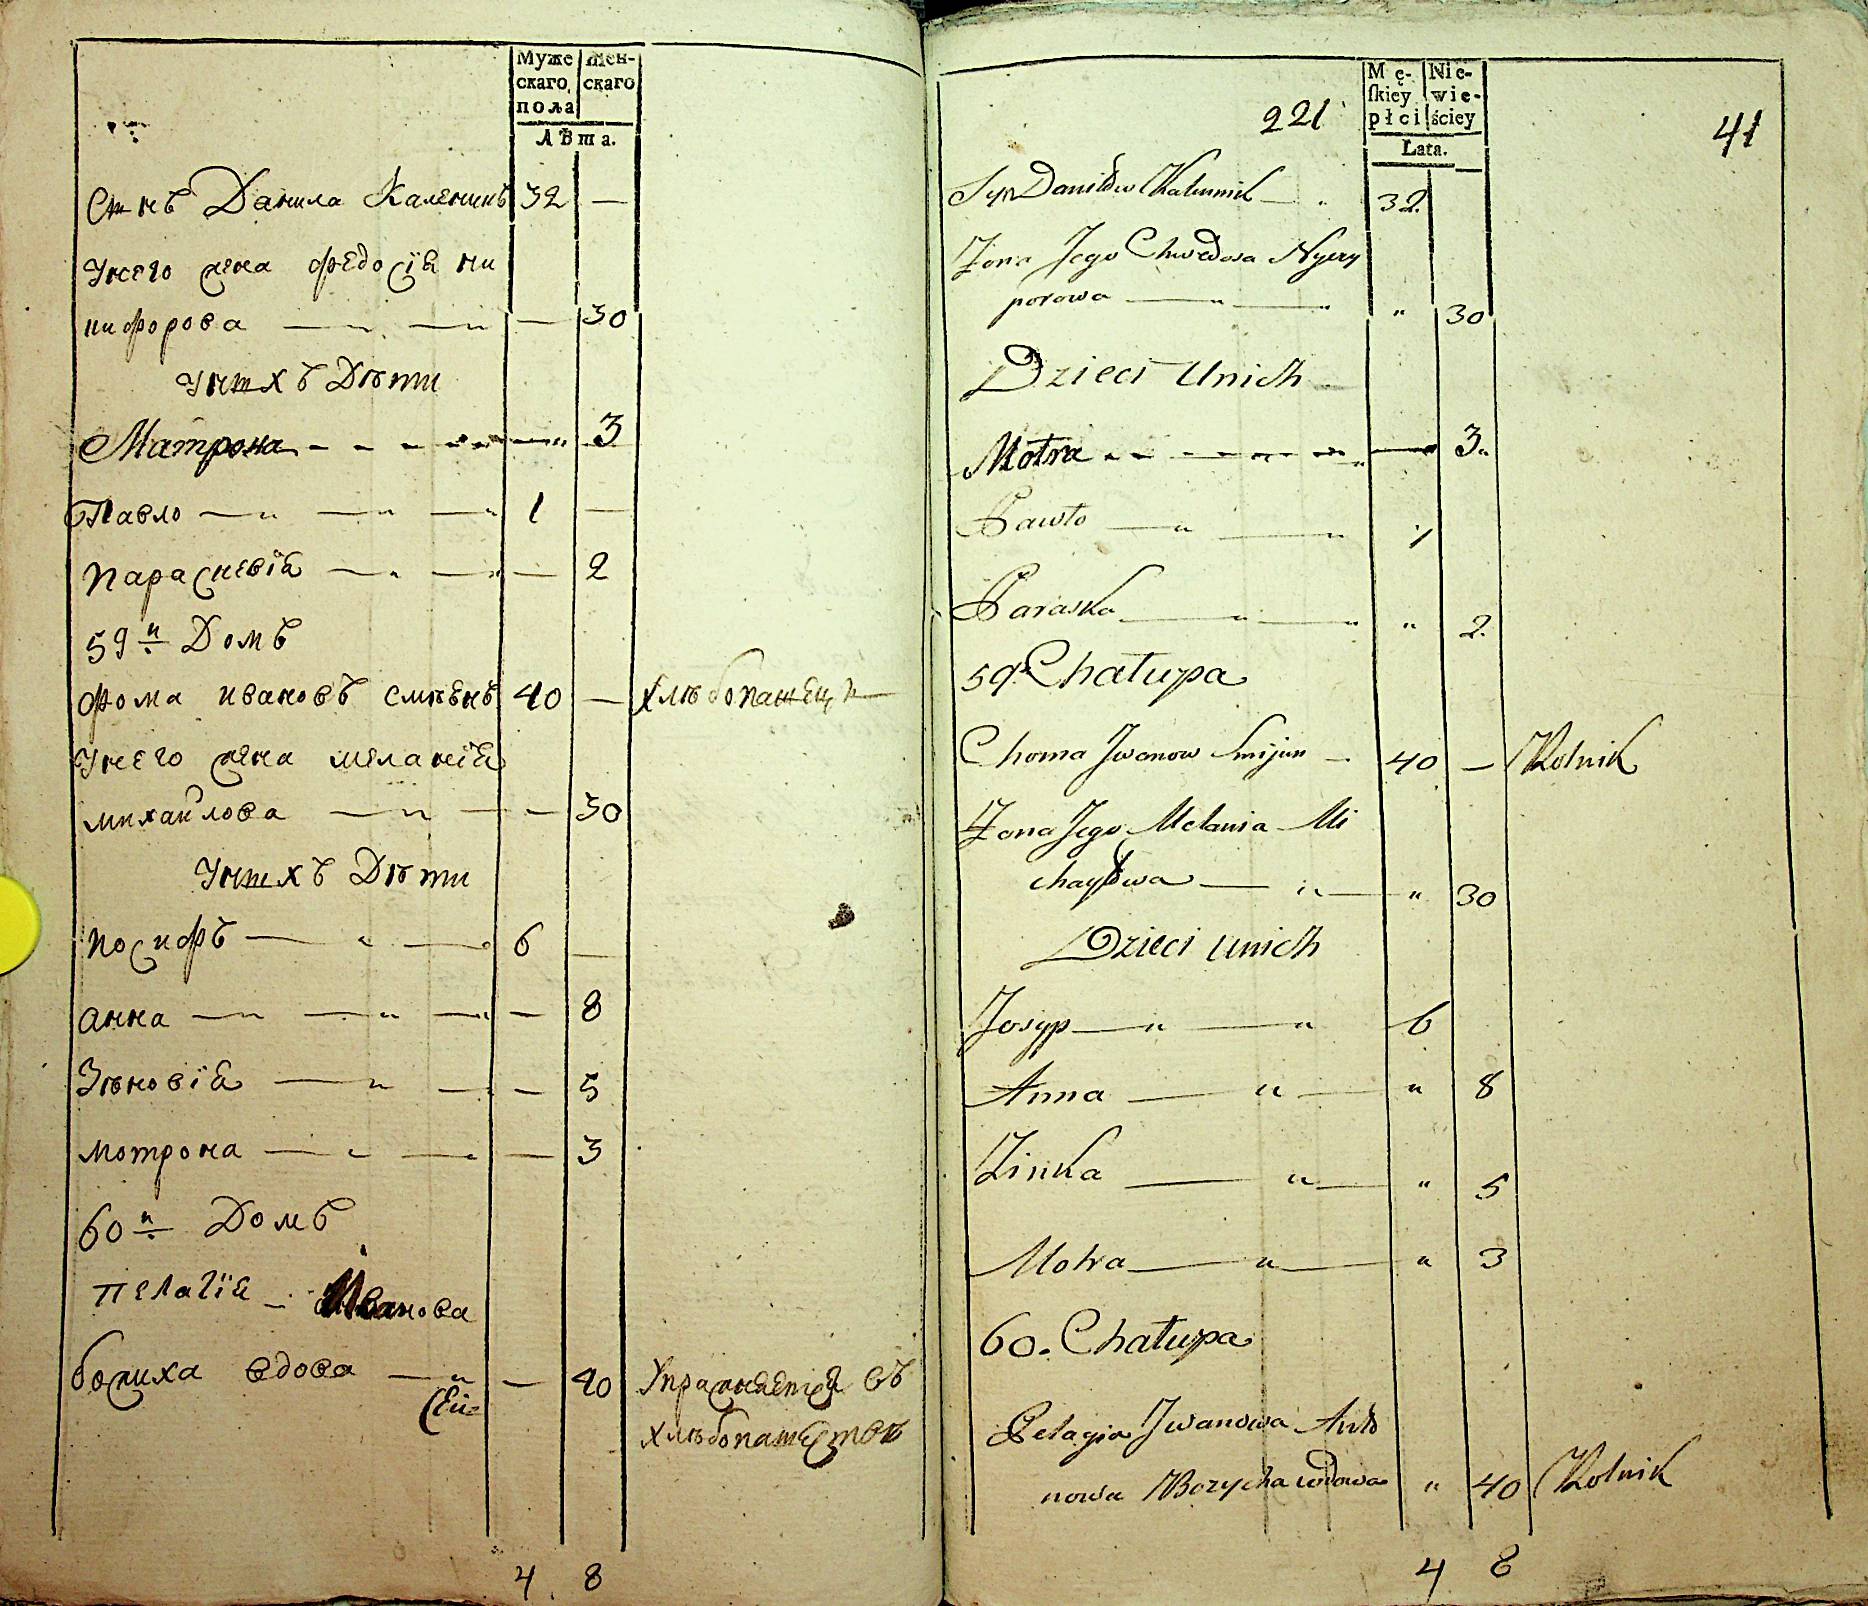 Муже
скаго
пола
Жен-
скаго
Лѣта.
Сынъ Данила Каленикъ 32 —
Унего жена федосія ни
кифорова — „ — „ — 30
Унихъ Дѣти
Матрона - - - - - — „ 3
Павло — „ — „ — „ 1 —
параскевія — „ — „ — 2
59й Домъ
фома ивановъ смѣянъ 40 — хлѣбопашецъ
Унего жена меланія
михайлова — „ — — 30
Унихъ Дѣти
иосифъ — „ — „ 6 —
анна — „ — „ — „ — 8
Зѣновія — „ — „ — 5
мотрона — „ — „ — 3
60й Домъ
пелагія — Иванова
вдова — „ — 40 Упражняется въ
хлѣбопашествѣ
4 8
221
41
Mę-
ſkiey
płci
Nie-
wie-
ściey
Lata.
Syn Daniłow Kalennik — „ 32.
Żona Jego Chwedosia Nyczy
porowa — „ — „ „ 30
Dzieci Unich
Motra - - - - - - „ — 3.
Pawło — „ — „ 1
Paraska — „ — „ „ 2.
59. Chałupa
Choma Jwanow Smijun — 40 — Rolnik
Żona Jego Melania Mi
chayłowa — „ — „ 30
Dzieci Unich
Josyp — „ — „ 6
Anna — „ — „ 8
Zinka — „ — „ 5
Motra — „ — „ 3
60. Chałupa
Pelagia Jwanowa Anto
nowa Bozycha wdowa „ 40 Rolnik
4 8